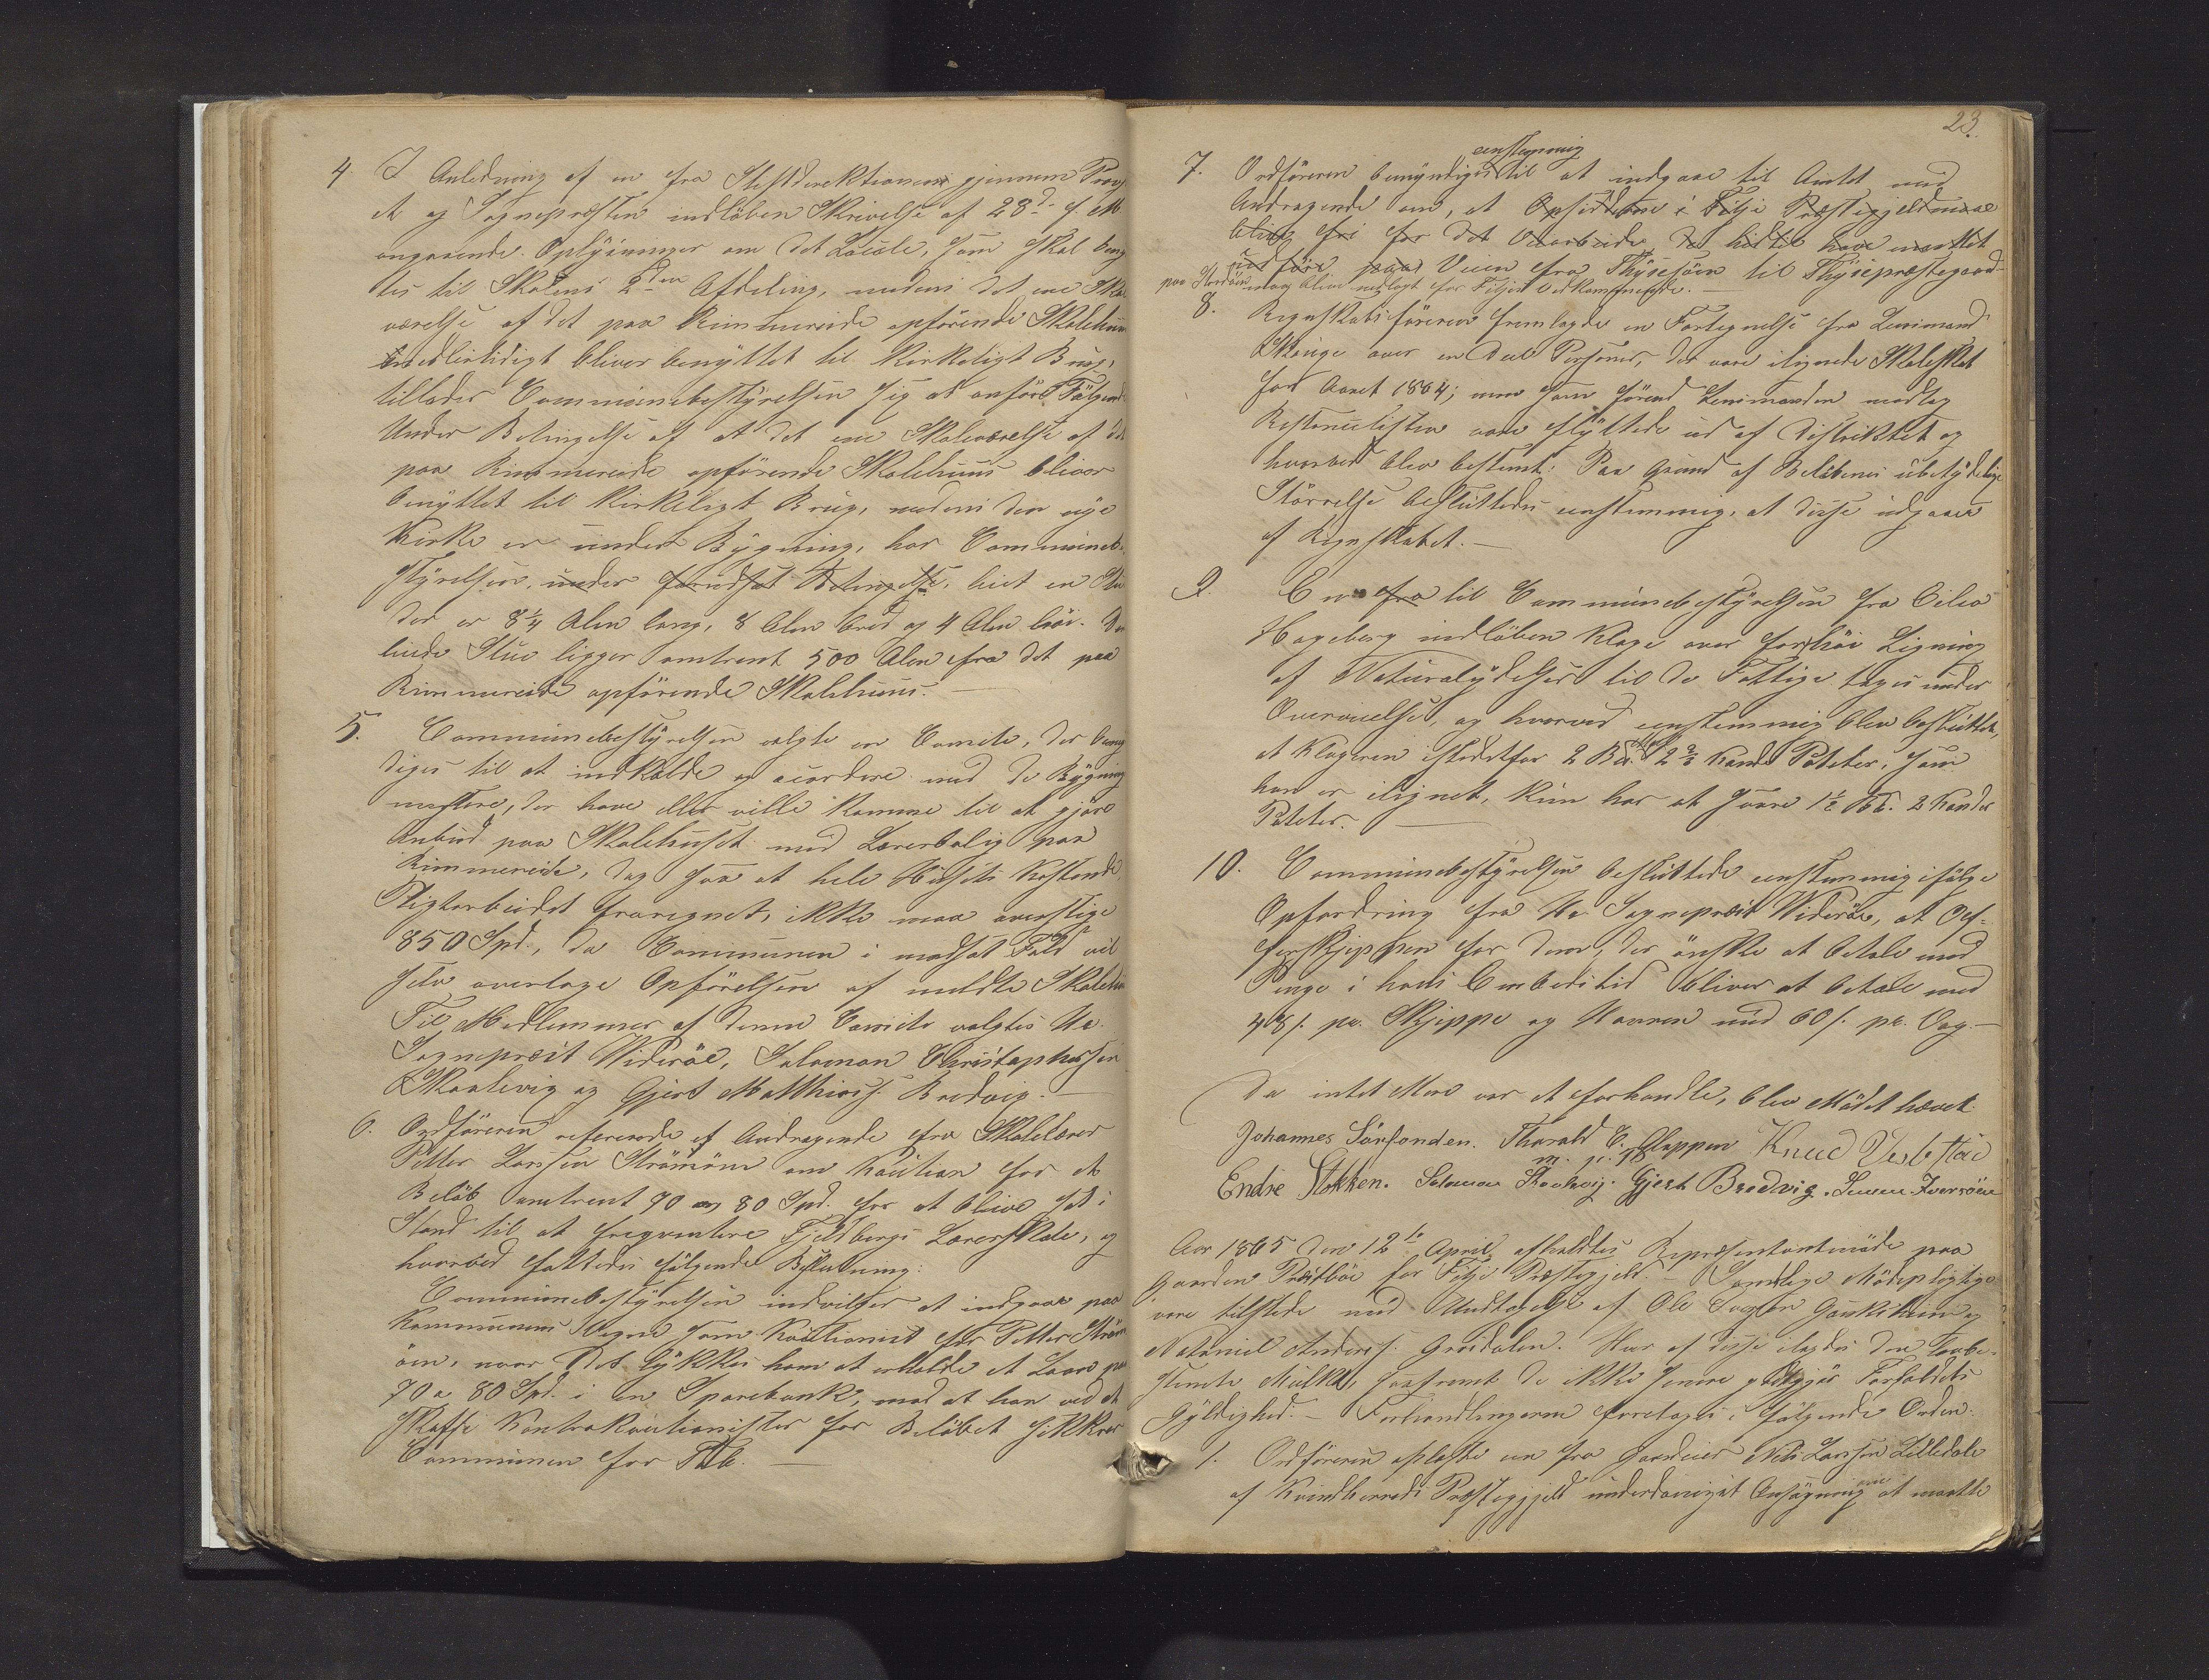 4. I Anledning af en fra Stiftsdirektionen gjennem Prov-
et og Sognepræsten indløben Skrivelse af 28d. f. M.
angaaende Oplysninger om det Locale, som skal beny
tes til Skolens 2den Afdeling, medens det ene Skole
værelse af det paa Rimmereide opførende Skolehuus
imidlertidigt bliver benyttet til kirkeligt Brug,
tillader Communebestyrelsen sig at anføre Følgende
Under Betingelse af at det ene Skoleværelse af det
paa Rimmereide opførende Skolehuus bliver
benyttet til kirkeligt Brug, medens den nye
Kirke er under Bygning, har Communebe-
styrelsen, under forudsat Betingelse, leiet en Stue
der er 8 1/4 Alen lang, 8 Alen bred og 4 Alen høi. Den
leiede Stue ligger omtrent 500 Alen fra det paa
Rimmereide opførende Skolehuus.
5. Communebestyrelsen valgte en Comite, der bemyn
diges til at indkalde og accordere med de Bygning
mestere, der have eller ville komme til at gjøre
Anbud paa Skolehuset med Lærerbolig paa
Rimmereide, dog saa at hele Husets Kostende,
Pligtarbeidet fraregnet, ikke maa overstige
850 Spd., da Communen i modsat Fald vil
selv overtage Opførelsen af meldte Skolehuus
Til Medlemmer af denne Comite valgtes Hr.
Sognepræst Widerøe, Salamon Christophersen
Skaalevig og Gjert Matthiass. Bredvig.
6. Ordføreren refererede et Andragende fra Skolelærer
Petter Larssen Strømøen om Kaution for et
Beløb omtrent 70 og 80 Spd. for at blive sat i
Stand til at freqventere Fjeldbergs Lærerskole, og
hvorved fattedes følgende Beslutning:
Communebestyrelsen indvilger at indgaae paa
Kommunens Vegne som Kautionist for Petter Strøm
øen, naar det lykkes ham at erholde et Laan paa
70 a 80 Spd. i en Sparebank, mod at han ved at
skaffe Kontrakautionister for Beløbet sikkrer
Communen for Tab.
23.
eenstemmig
7. Ordføreren bemyndiges til at indgaae til Amtet med
Andragende om, at Opsidderne i Fitje Præstegjeld maae
blive fri for det Veiarbeide, de hidtil have maattet
udføre paa Veien fra Thysesøen til Thysepræstegaard
paa Stordøen maa blive nedlagt for Fitjes Vedkommende.
8. Regnskabsføreren fremlagde en Fortegnelse fra Lensmand
Skouge over en Deel Personer, der vare ilignede Skoleskat
for Aaret 1864; men som førend Lensmanden modtog
Restancelisten vare flyttede ud af Distriktet og
hvorved blev bestemt: Paa Grund af Beløbenes ubetydelige
Størrelse besluttedes eenstemmig, at disse udgaaer
af Regnskabet.
9. En fra til Communebestyrelsen fra Eilev
Hageberg indløben Klage over for høi Ligning
af Naturalydelser til de Fattige tages under
Overveielse, og hvorved eenstemmig blev besluttet,
at Klageren istedetfor 2 Bd. 2 2/3 Kande Poteter, som
han er ilignet, kun har at svare 1 1/2 Bd. 2 Kander
Poteter.
10. Communebestyrelsen besluttede eenstemmig ifølge
Opfordring fra Hr Sognepræst Widerøe, at Of-
ferskjeppen for dem, der ønske at betale med
Penge i hans Embedstid bliver at betale med
48 s. pr. Skjeppe og Havren med 60 s. pr. Vog.
Da intet Mere var at forhandle, blev Mødet hævet.
Johannes Sørfonden. Thorald C. Kloppen Knud Vestbstad
m. p. P.
Endre Stokken. Salamon Skaalevig. Gjert Bredvig. Simon Iversøen
Aar 1865 den 12te April afholdtes Repræsentantmøde paa
Gaarden Præstbøe for Fitje Præstegjeld. Samtlige Mødepligtige
vare tilstede med Undtagelse af Ole Larsen Gaukeheim og
Nataniel Anderss. Grøsdalen. Hver af disse ilagdes den lovbe-
stemte Mulkt, saafremt de ikke senere godtgjør Forfaldets
Gyldighed. – Forhandlingerne foretoges i følgende Orden:
1. Ordføreren oplæste en fra Gaardeier Nils Larssen Lilledale
af Kvindherreds Præstegjeld underdanigst Ansøgning om at maatte